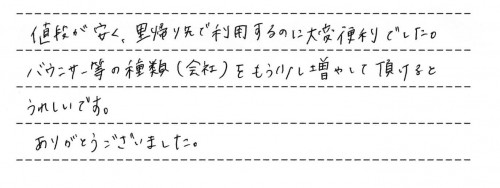 値段が安く、里帰り先で利用するのに大変便利でした。
バウンサー等の種類(会社)をもう少し増やして頂けると
うれしいです。
ありがとうございました。